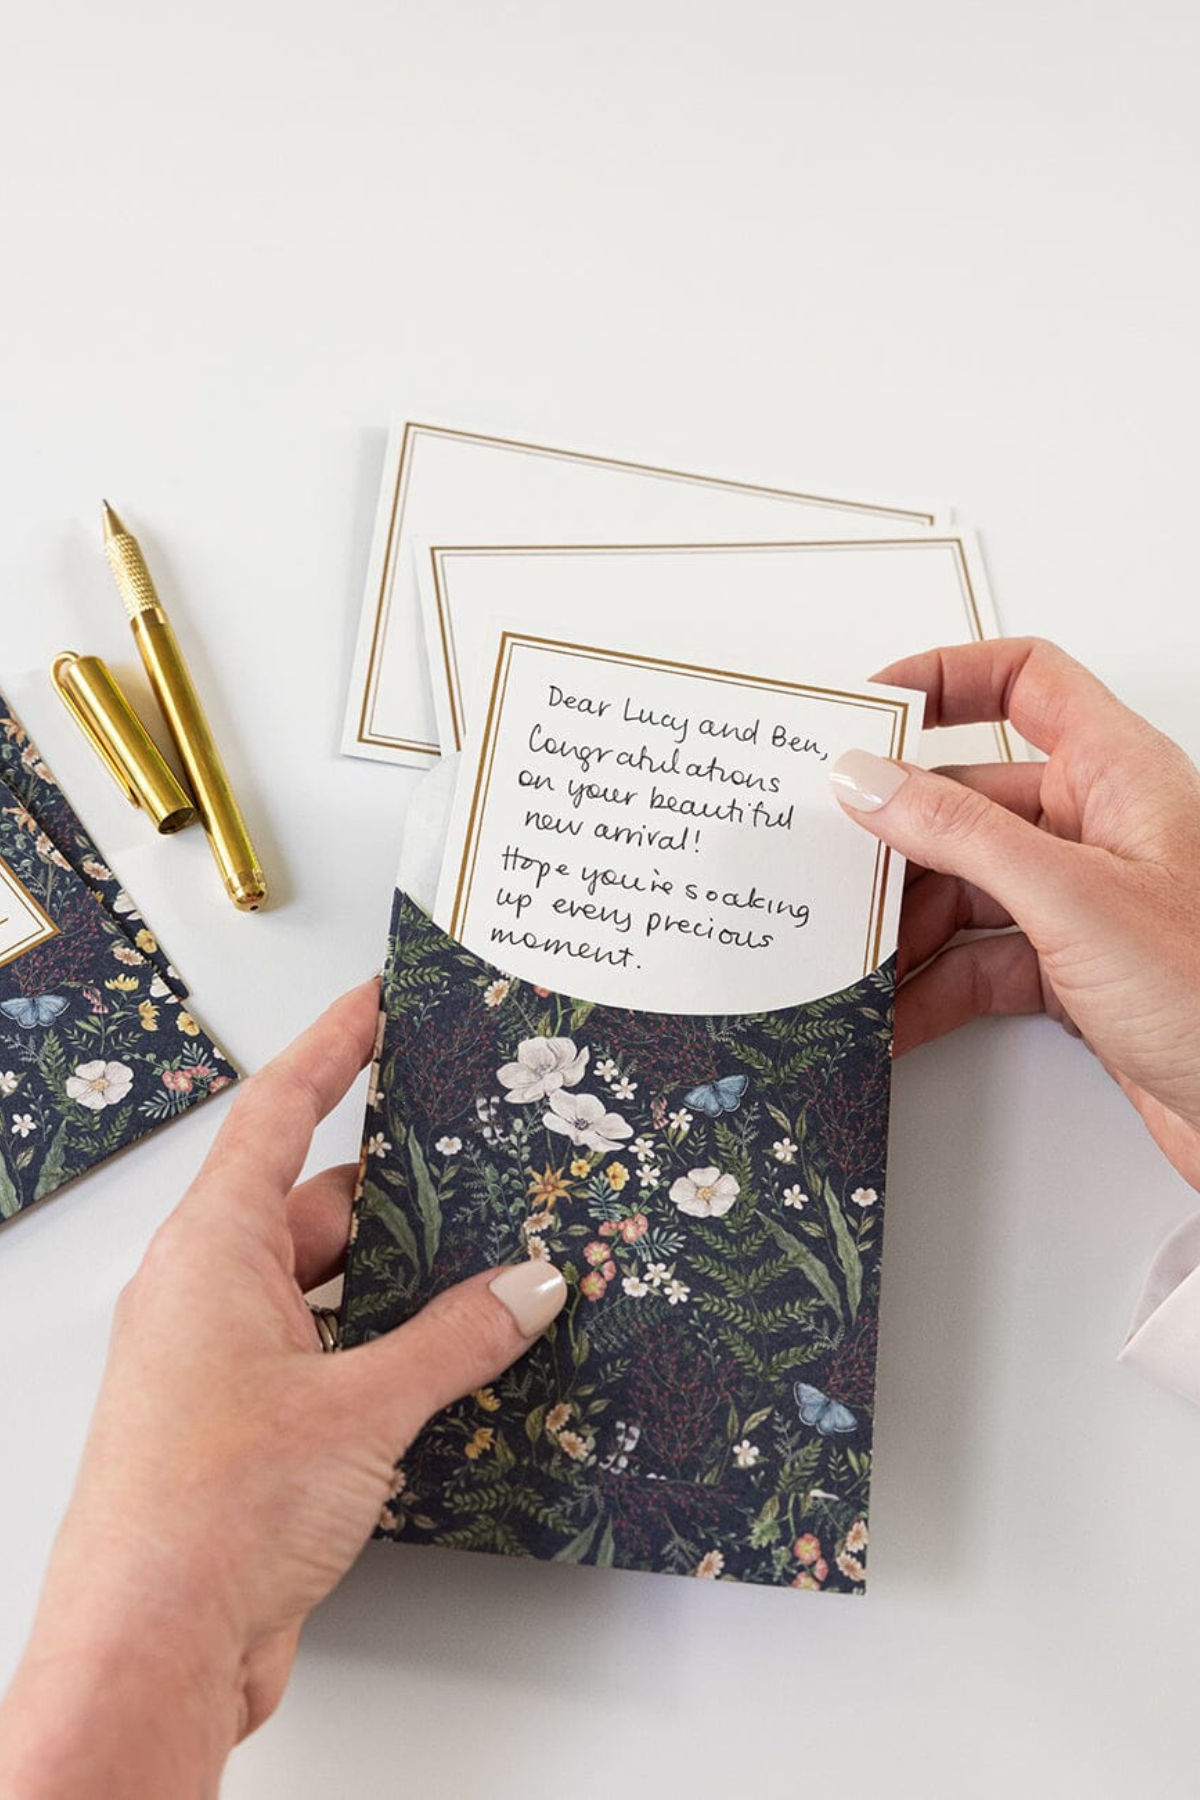 Dear Lucy and Ben,
Congratulations
on your beautiful
new arrival!
Hope you're soaking
up every precious
moment.